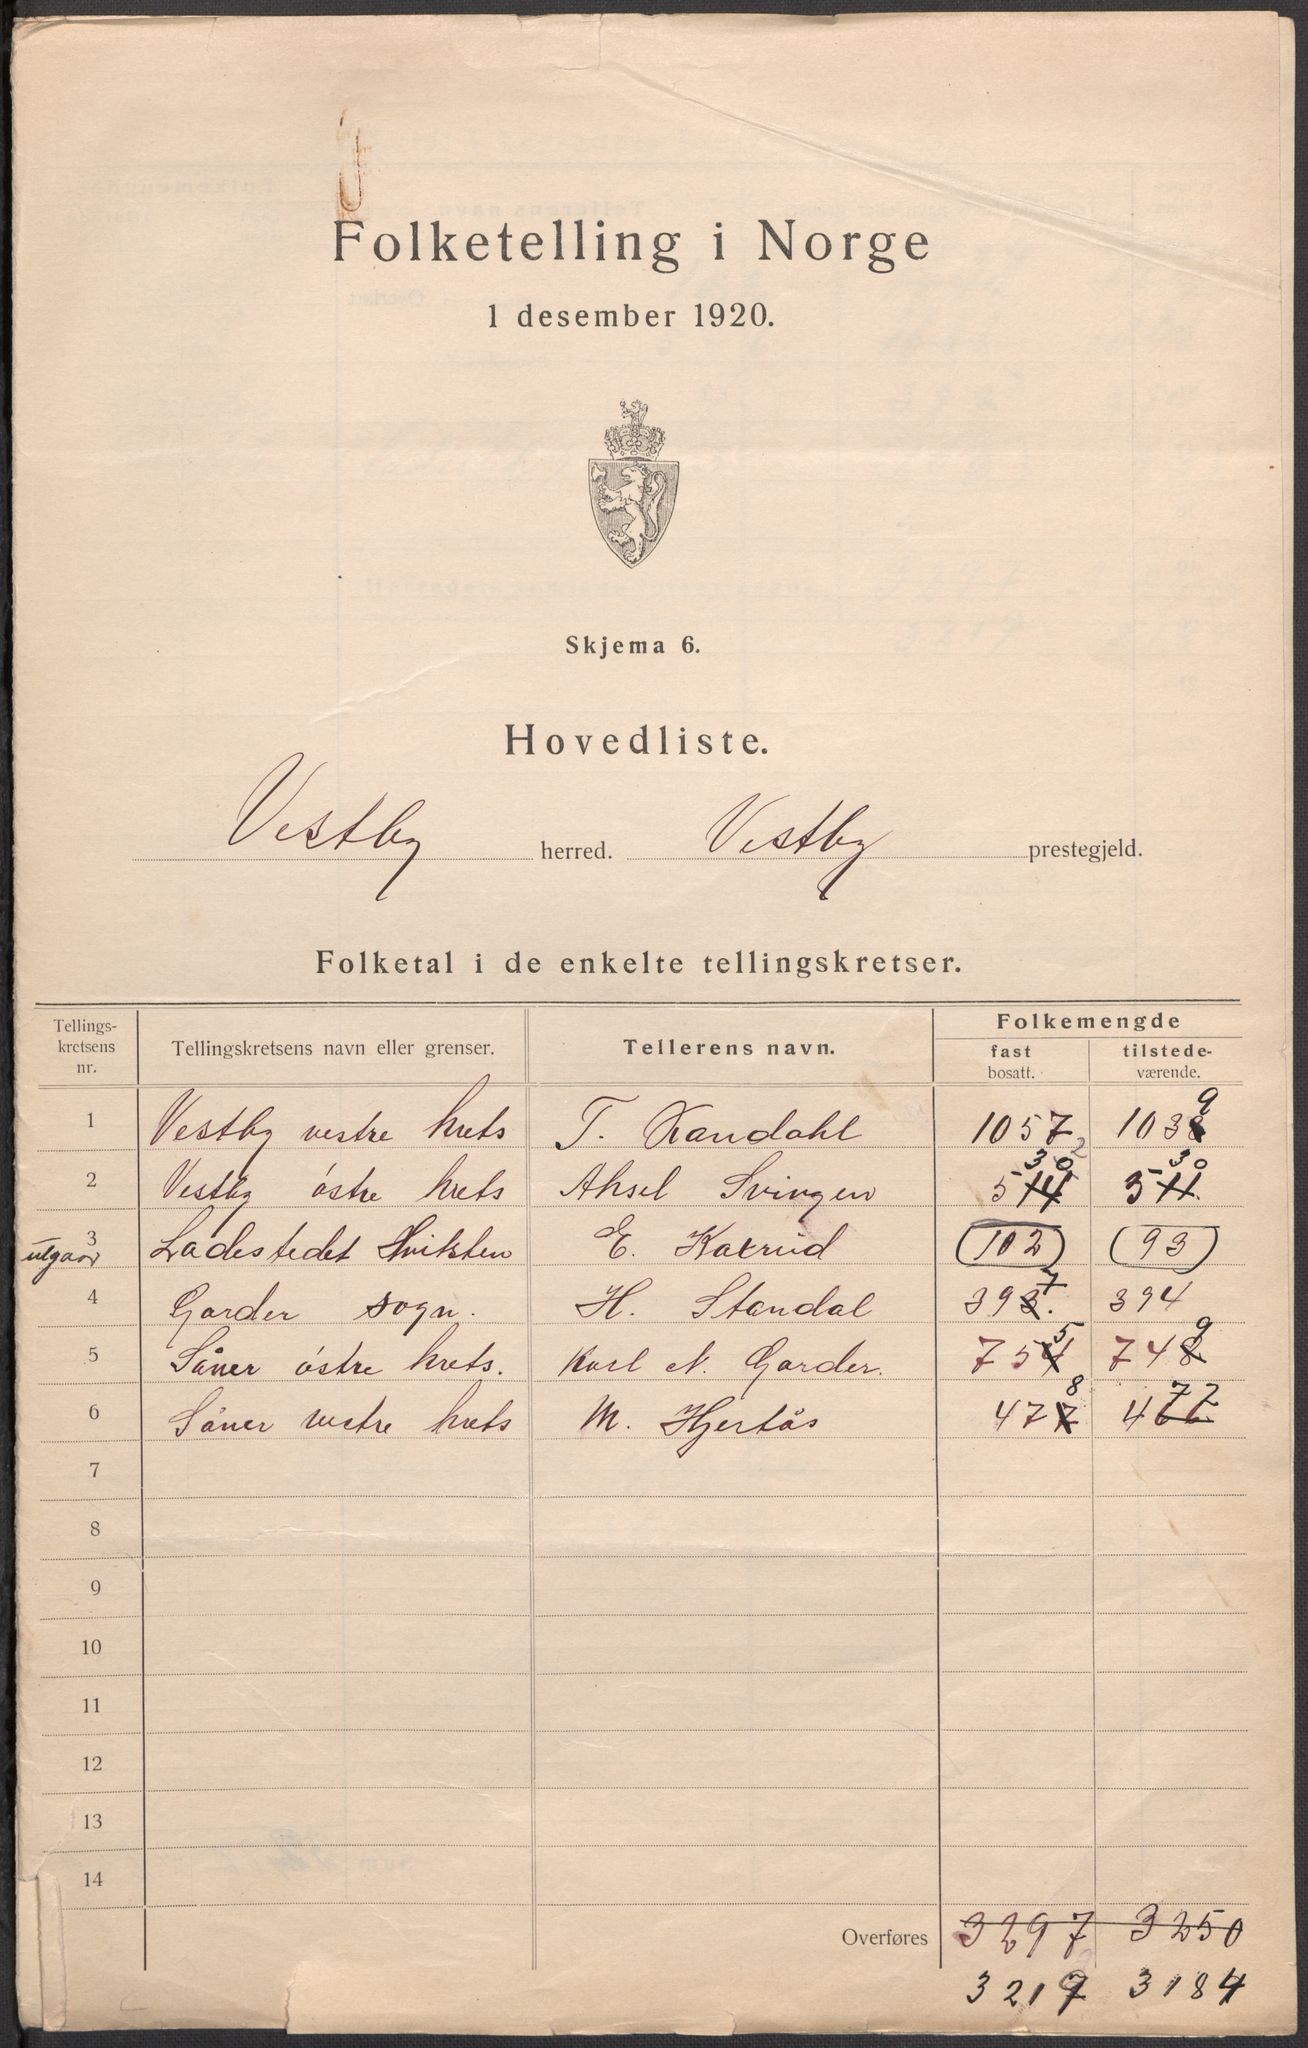 Folketelling i Norge
1 desember 1920.
Skjema 6.
Hovedliste.
Vestby herred. Vestby prestegjeld.
Folketal i de enkelte tellingskretser.
Tellings-kretsens nr. Tellingskretsens navn eller grenser. Tellerens navn. Folkemengde
fast bosatt. tilstede-værende.
1 Vestby vestre krets T. Kandahl 1057 1039
2 Vestby østre krets Aksel Svingen 530 530
utgaar 3 Ladestedet Hvitsten E. Kaxrud (102) (93)
4 Garder sogn. H. Standal 397. 394
5 Såner østre krets. Karl N. Garder. 755 749
6 Såner vestre krets M. Hjertås 478 472
7
8
9
10
11
12
13
14
Overføres 3297 3250
3217 3184